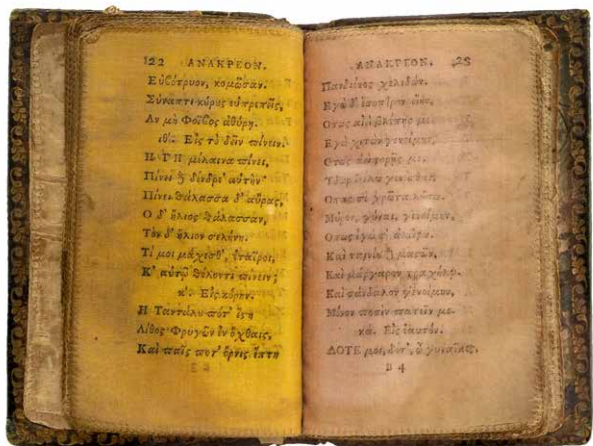 22 ΑΝΑΚΡΕΟΝ.
Εὐβότρυον, κομῶσαν.
Σύναπτε κύρης εὐπρεπεῖς,
Αν μὴ Φοῖβος ἀθύρῃ.
ιθ'. Εἰς τὸ δεῖν πίνειν.
Η ΓΗ μέλαινα πίνει,
Πίνει δὲ δένδρε' αὐτήν·
Πίνει θάλασσα δ' αὔρας,
Ο δ' ἥλιος θάλασσαν,
Τὸν δ' ἥλιον σελήνη.
Τί μοι μάχεσθ', ἑταῖροι,
Κ' αὐτῷ θέλοντι πίνειν;
κ'. Εἰς κόρην.
Η Ταντάλου ποτ' ἔστη
Λίθος Φρυγῶν ἐν ὄχθαις,
Καὶ παῖς ποτ' ὄρνις ἔπτη
ΑΝΑΚΡΕΟΝ. 23
Πανδίονος χελιδών.
Εγὼ δ' ἔσοπτρον εἴην,
Οπως ἀεὶ βλέπῃς με·
Εγὼ χιτὼν γενοίμην,
Οπως ἀεὶ φορῇς με.
Υδωρ θέλω γενέσθαι,
Οπως σὲ χρῶτα λούσω.
Μύρον, γύναι, γενοίμην,
Οπως ἐγώ σ' ἀλείψω.
Καὶ ταινίη δὲ μασῶν,
Καὶ μάργαρον τραχήλῳ.
Καὶ σάνδαλον γενοίμην,
Μόνον ποσὶν πατεῖν με.
κά. Εἰς ἑαυτόν.
ΔΟΤΕ μοι, δότ', ὦ γυναῖκες,
B 4